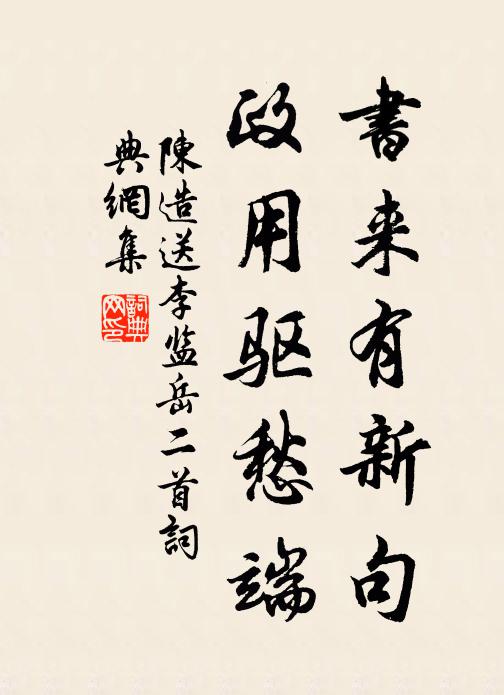 書来有新句
政用驱愁端
陳造送李监岳二首詞
典網集
詞典网印